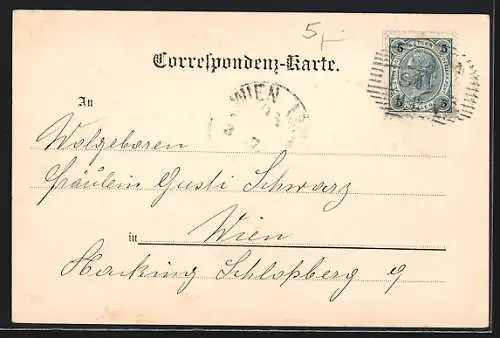 5,-
Correspondenz-Karte.
5 5
WIEN
An
Wolgeboren
Fräulein Gusti Schwarz
in Wien
Hacking Schloßberg 9